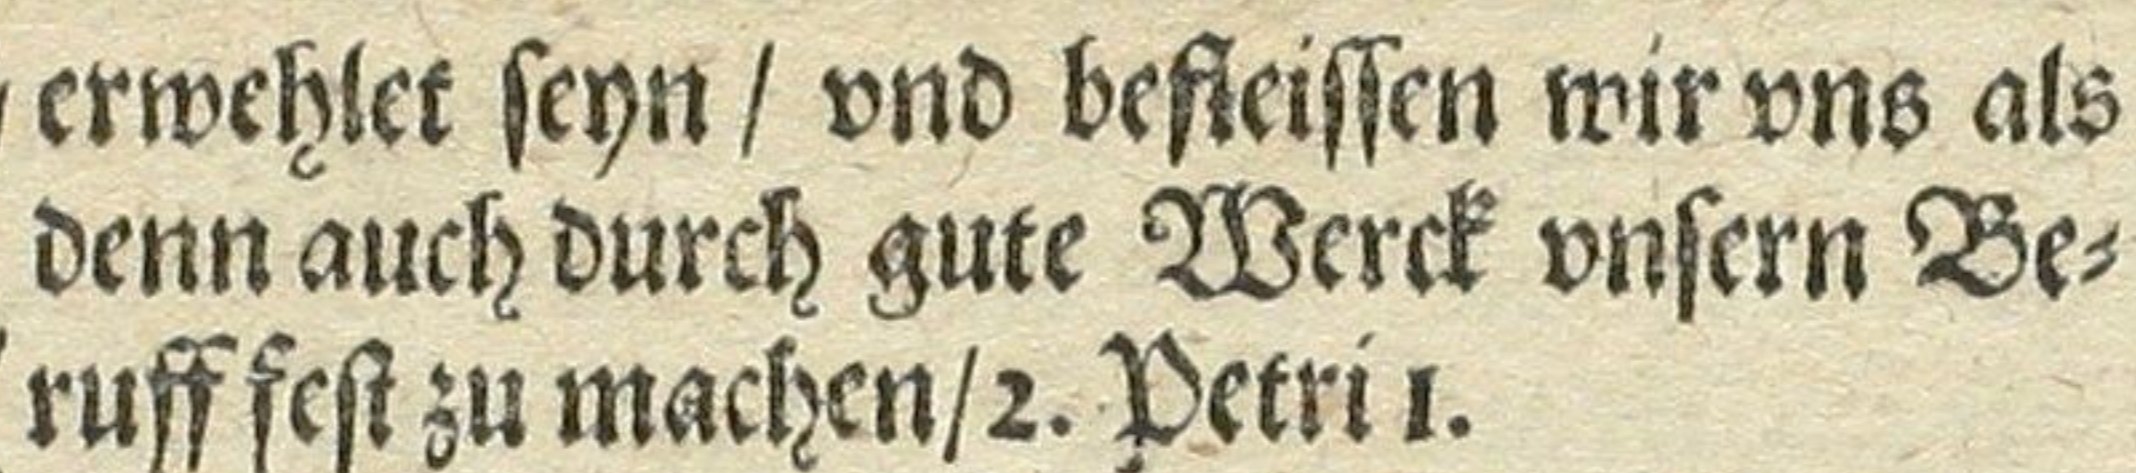 erwehlet ſeyn / vnd befleiſſen wir vns als
denn auch durch gute Werck vnſern Be⸗
ruff feſt zu machen / 2. Petri 1.